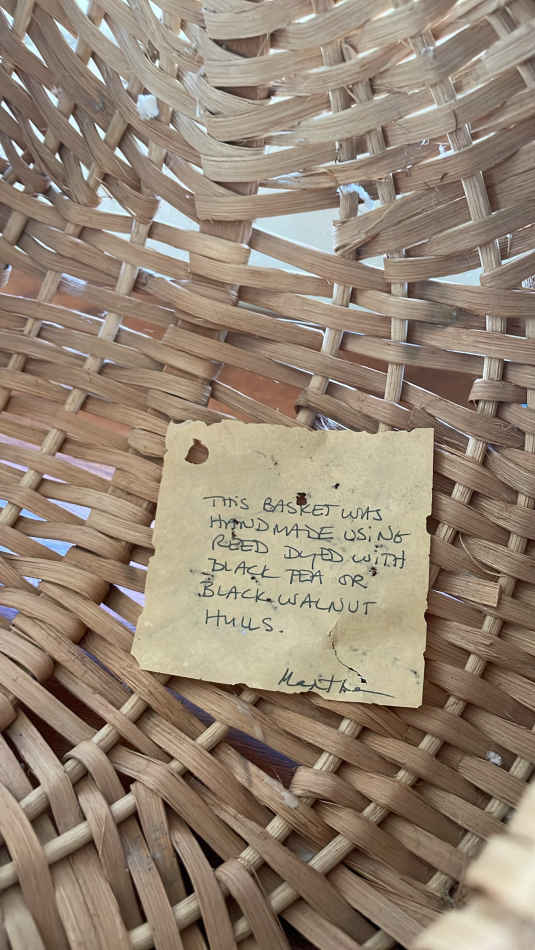 THIS BASKET WAS
HANDMADE USING
REED DYED WITH
BLACK TEA OR
BLACK WALNUT
HULLS.
Martha